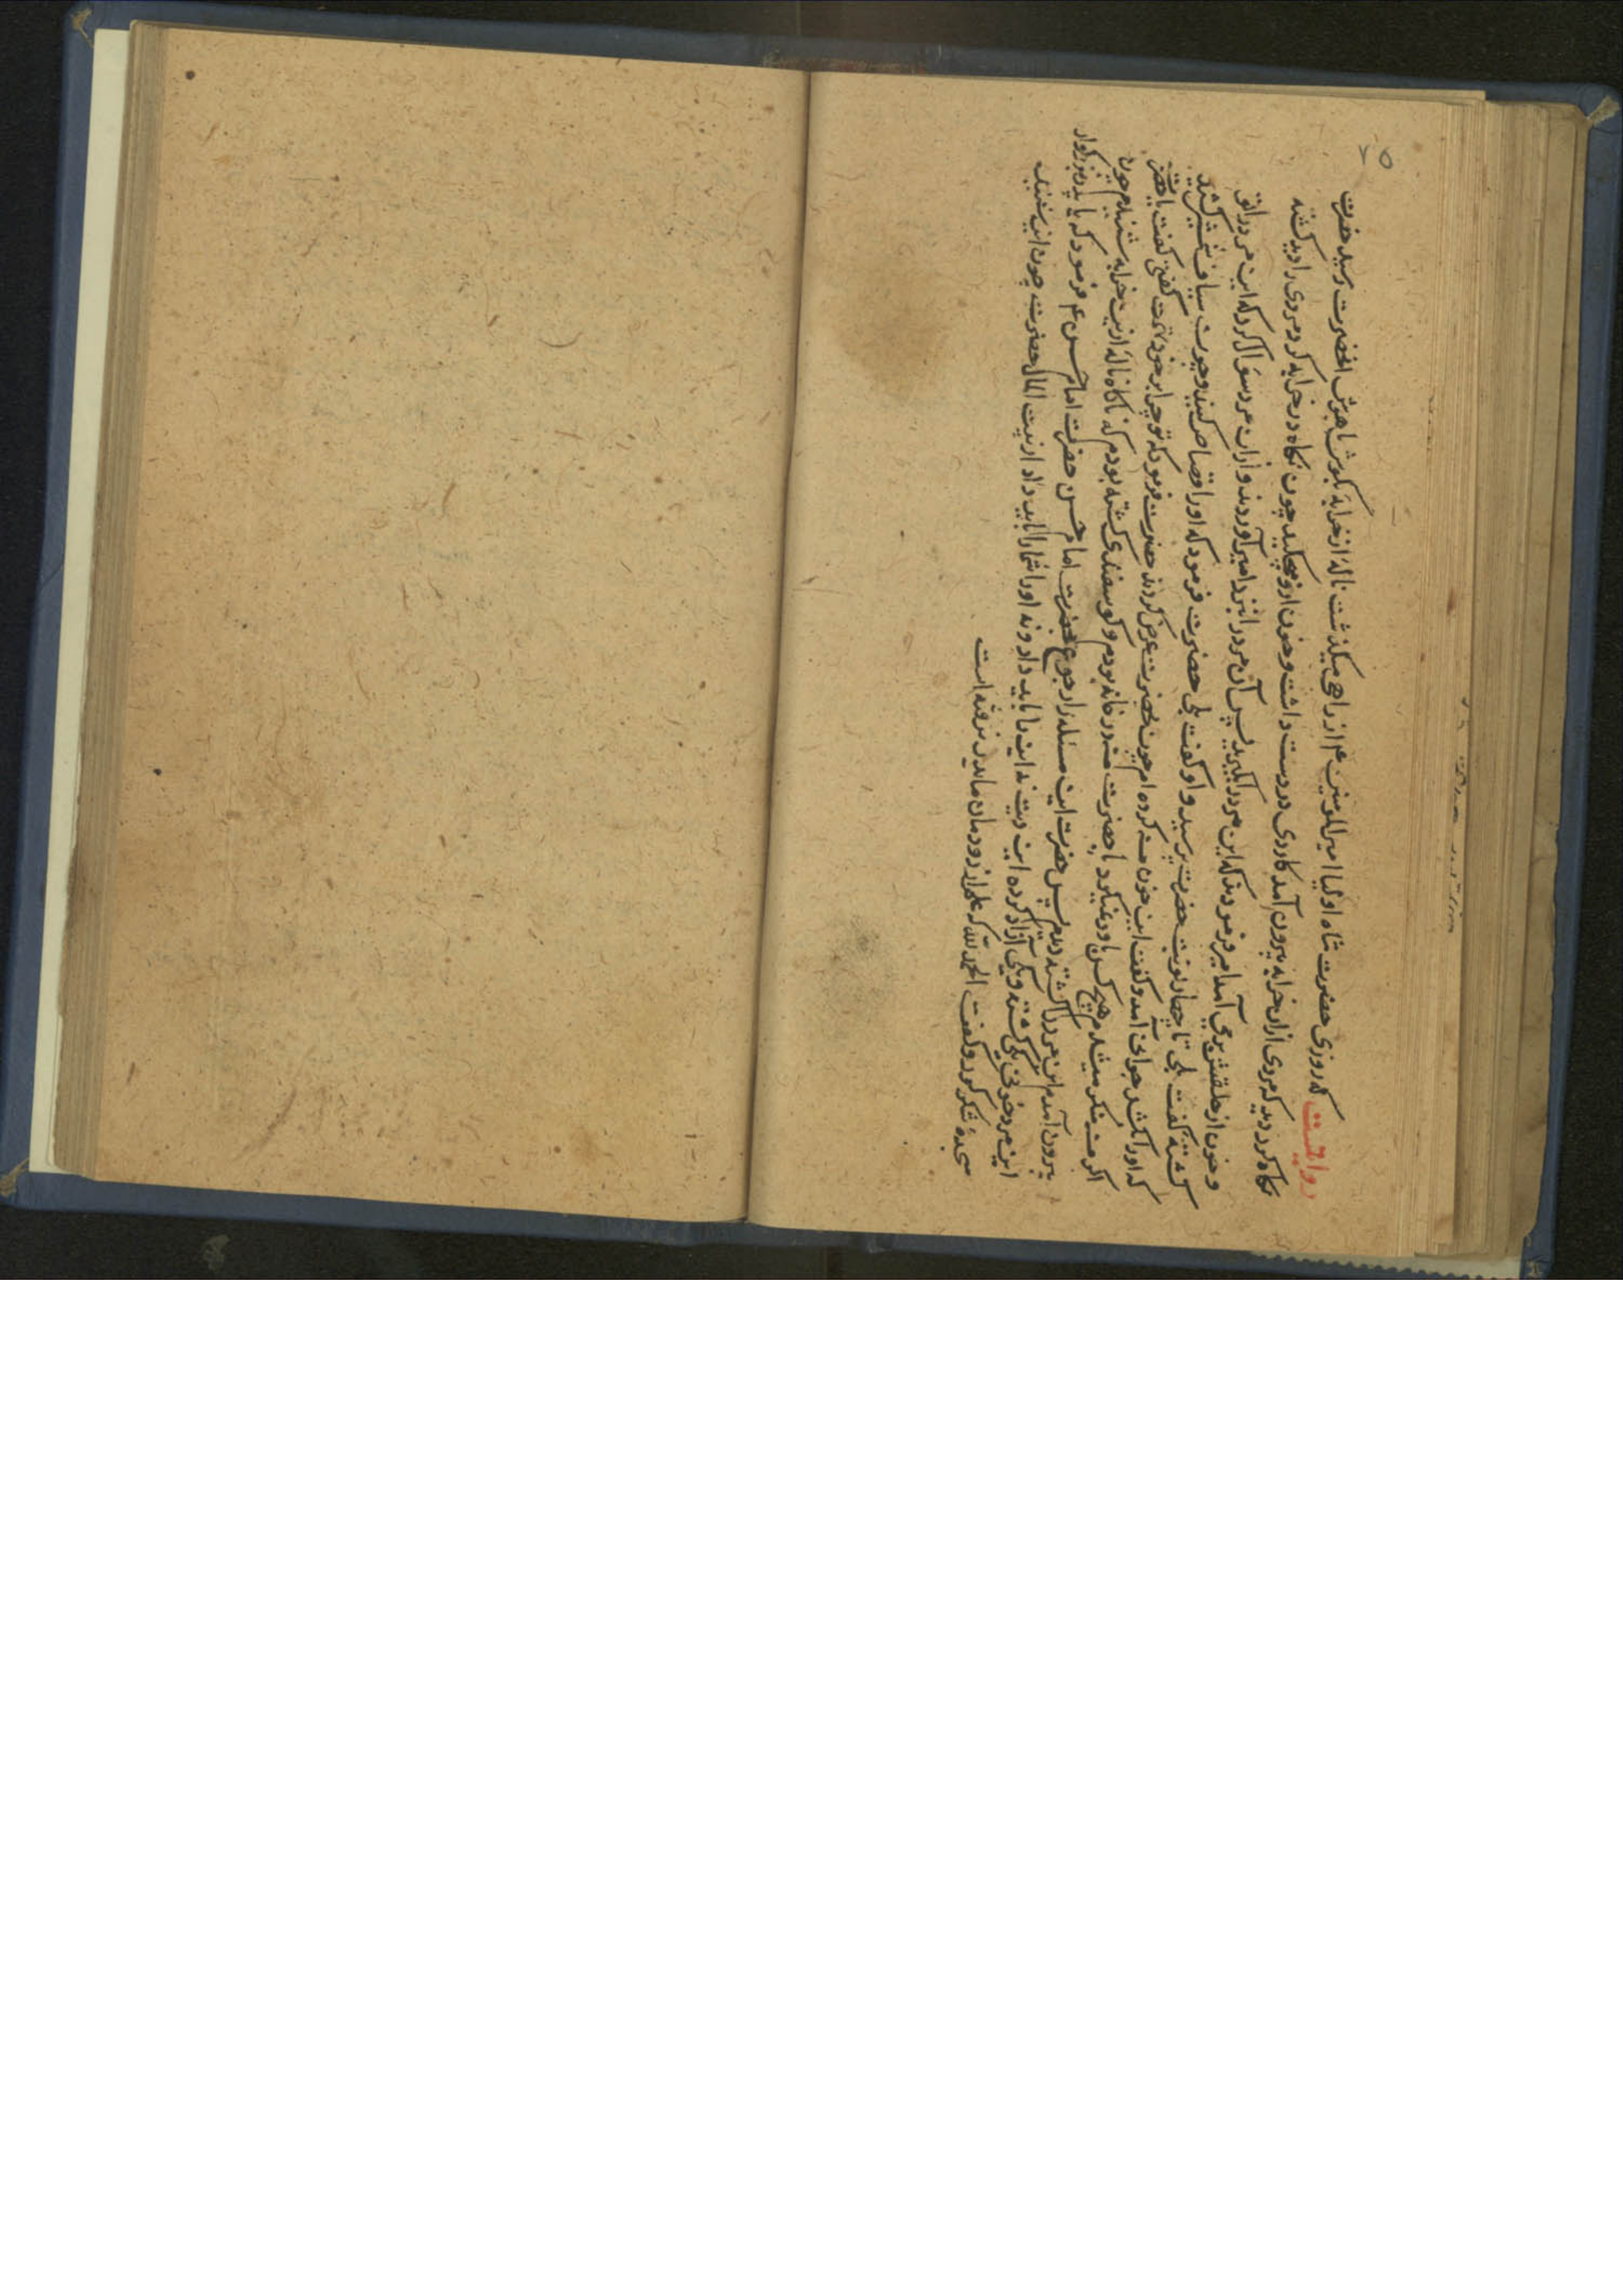 ۲۵
روایتست که روزی حضرت شاه اولیا امیرالمومنین ع از راهی میگذشت ناله از خرابه بگوش هوش انحضرت رسید حضرت
نگاه کرد دید که مردی ازان خرابه بیرون آمد کاردی در دست داشت و خون ازو میچکید چون نگاه در خرابه کرد مردی را دید کشته
و خون از حلقش بر می آمد امیر فرمودند که این مرد را بگیرید پس آن مرد را نزد امیر آوردند و ازان مرد سؤال کرد که این مرد را تو
کشتهٔ گفت بلی تا چهار نوبت حضرت پرسید و او گفت بلی حضرت فرمود که او را قصاص کنید و چون سیاف شمشیر کشید
که او را بکشد جوانی آمد و گفت این خون من کرده ام چون بحضرت عرض کردند حضرت فرمود که تو چرا بر خود تهمت گفتی گفت یا حضرت
اگر من منکر میشدم هیچ کس باور نمیکرد یا حضرت من در خانه بودم و گوسفندی کشته بودم که ناگاه ناله ازین خرابه شنیدم چون
بیرون آمدم این مرد را کشته دیدم پس حضرت این مسئله را رجوع بحضرت امام حسن حضرت امام حسن ع فرمود که یا پدر بزرگوار
این مرد خونی یکی کشته و یکی آزاد کرده این دیت نه این را باید داد و نه او را شما را باید داد از بیت المال حضرت چون این شنید
سجدهٔ شکر کرد و گفت الحمد لله که علم از دودمان ما بدر نرفته است